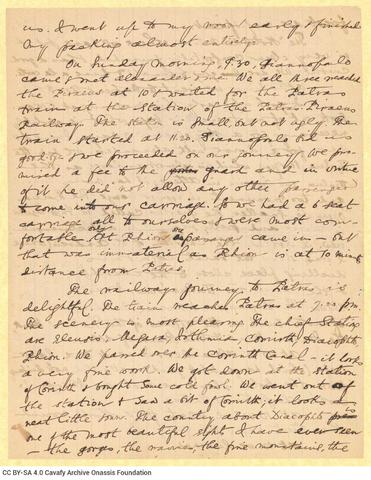 us. I went up to my room early & finished
my packing almost entirely.
On Sunday morning, 9.30, Giannopoulo
came & met Alexander & me. We all three reached
the Piraeus at 10 & waited for the Patras
train at the Station of the Patras-Piraeus
Railway. The statn is small but not ugly. The
train started at 11.20. Giannopoulo bid us
goodbye & we proceeded on our journey. We pro-
mised a fee to the guard and in virtue
of it he did not allow any other passenger
to come into our carriage. So we had a 6 seat
carriage all to ourselves & were most com-
fortable. At Rhion passenger came in — but
that was immaterial as Rhion is at 10 minutes
distance from Patras.
The railway journey to Patras is
delightful. The train reaches Patras at 7.20 pm.
The scenery is most pleasing. The chief Stations
are Eleusis, Megara, Isthmia, Corinth, Diacopto
Rhion. We passed over the Corinth Canal — it looks
a very fine work. We got down at the station
of Corinth & bought some cold food. We went out of
the station & saw a bit of Corinth, it looks a
neat little town. The country about Diacopto is
one of the most beautiful sight I have ever seen
— the gorge, the ravines, the fine mountains, the
CC BY-SA 4.0 Cavafy Archive Onassis Foundation